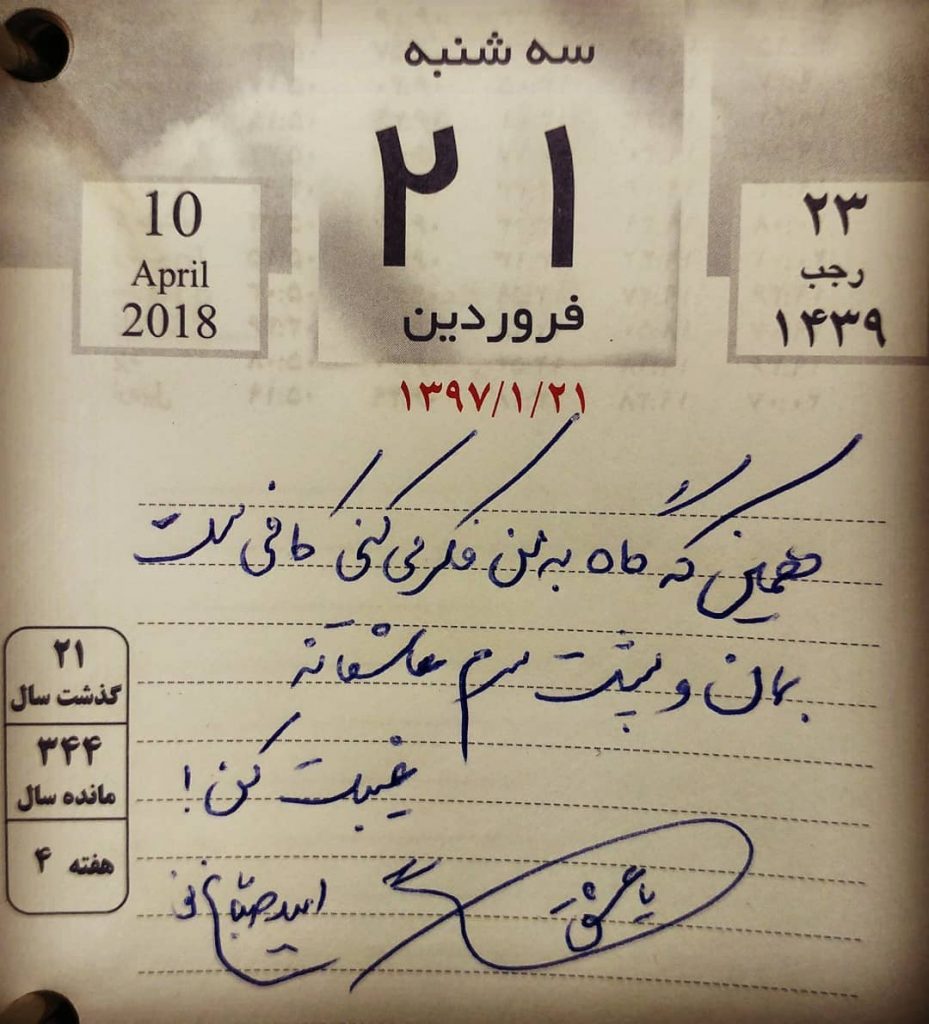 سه شنبه
۲۱
فروردین
۱۳۹۷/۱/۲۱
۲۳
رجب
۱۴۳۹
10
April
2018
همین که گاه به من فکر می کنی کافی نیست
بمان و پشت سرم عاشقانه
غیبت کن!
یا عشق
امید صباغ نو
۲۱
گذشت سال
۳۴۴
مانده سال
هفته ۴